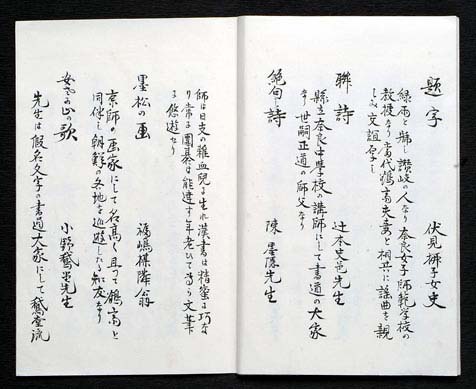 題字 伏見柳子女史
緑雨と號し讃岐の人なり奈良女子師範学校の
教授なり當代鶴高夫妻と相共に謡曲を親
しみ文誼厚し
聯詩 辻本史邑先生
縣立奈良中学校の講師にして書道の大家
なり世嗣正道の師父なり
絶句詩 陳墨隠先生
師は日支の雑血兒に生れ漢書は精蜜に巧な
り常に圍碁に能達す年老ひて尚ら文筆
に悠遊たり
墨松の画 福嶋楳隣翁
京師の画家にして名高く且つて鶴高と
同伴し朝鮮の各地を巡遊したる知友なり
女さか山の歌 小野鵞堂先生
先生は假名文字の書道大家にして鵞堂流